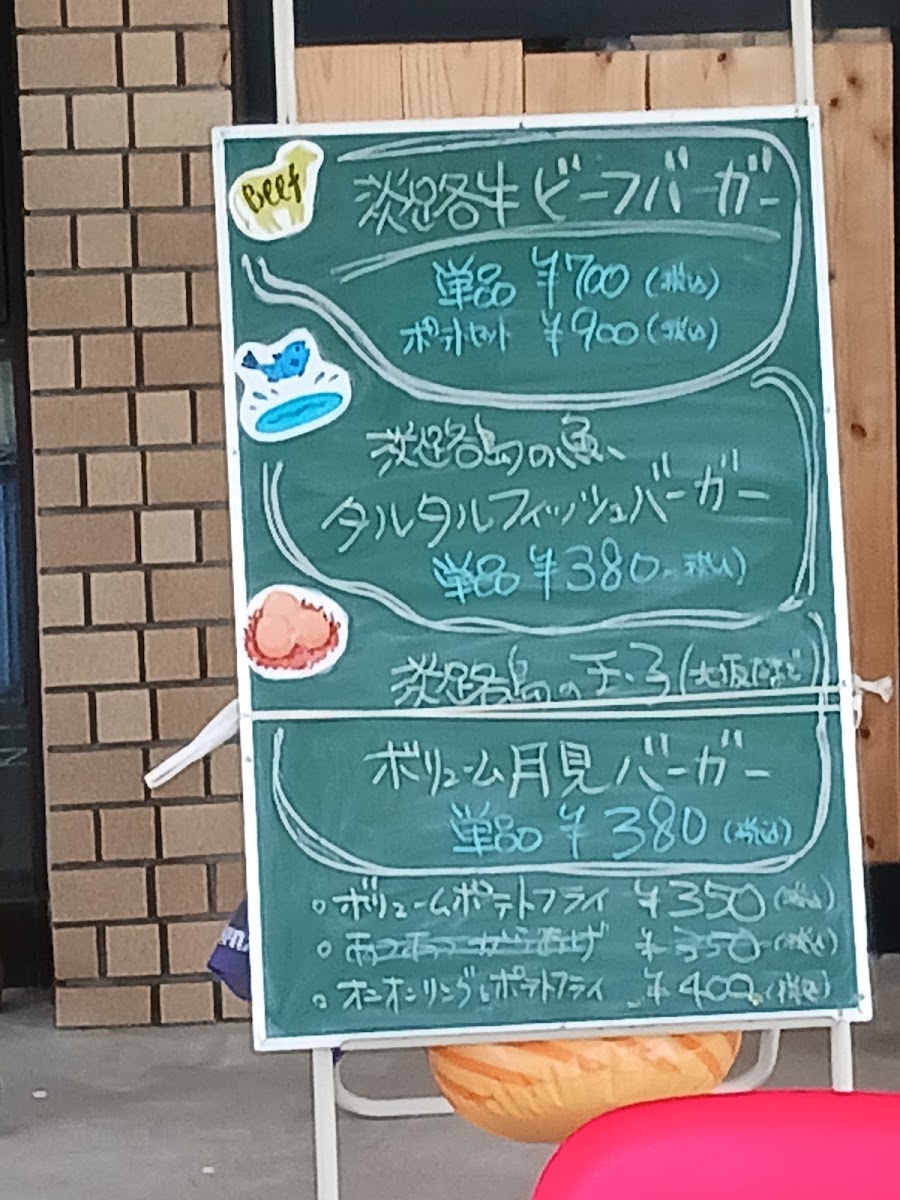 Beef
淡路牛ビーフバーガー
単品 ¥700(税込)
ポテトセット ¥900(税込)
淡路島の魚
タルタルフィッシュバーガー
単品 ¥380(税込)
淡路島の玉子(北坂たまご)
ボリューム月見バーガー
単品 ¥380(税込)
・ボリュームポテトフライ ¥350(税込)
・あつあつからあげ ¥350(税込)
・オニオンリング&ポテトフライ ¥400(税込)